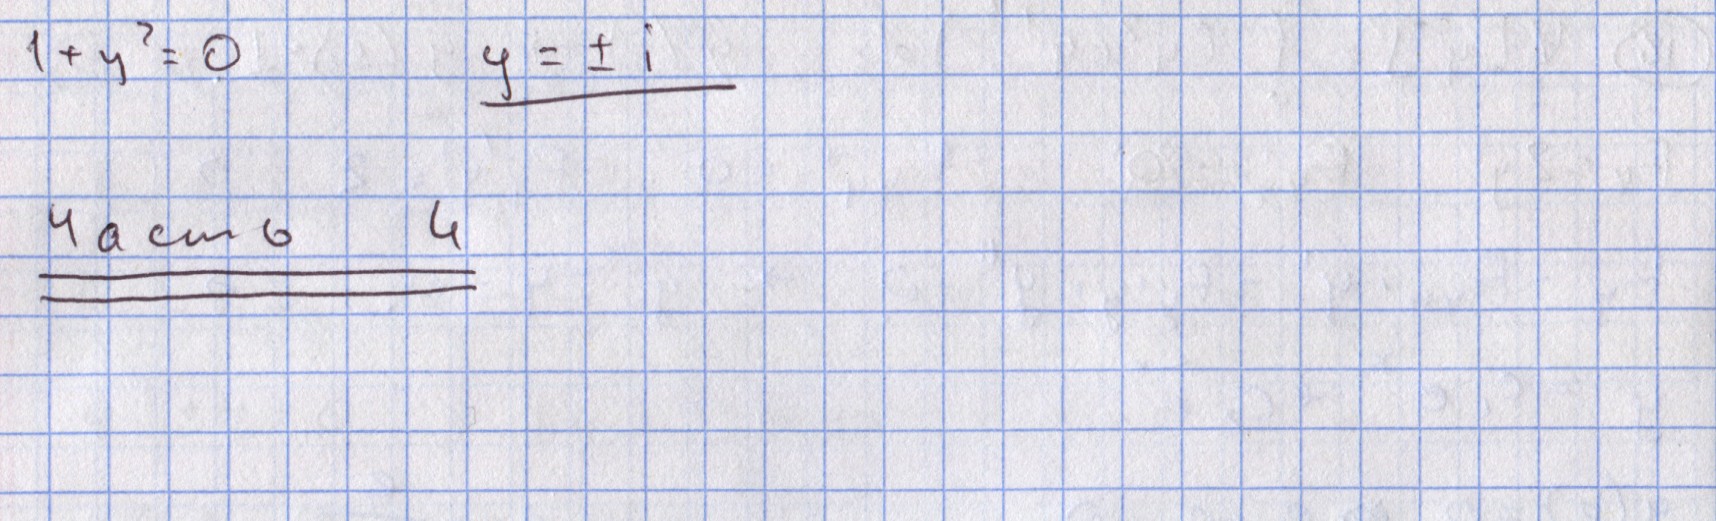 1 + y² = 0 y = ± i
Часть 4